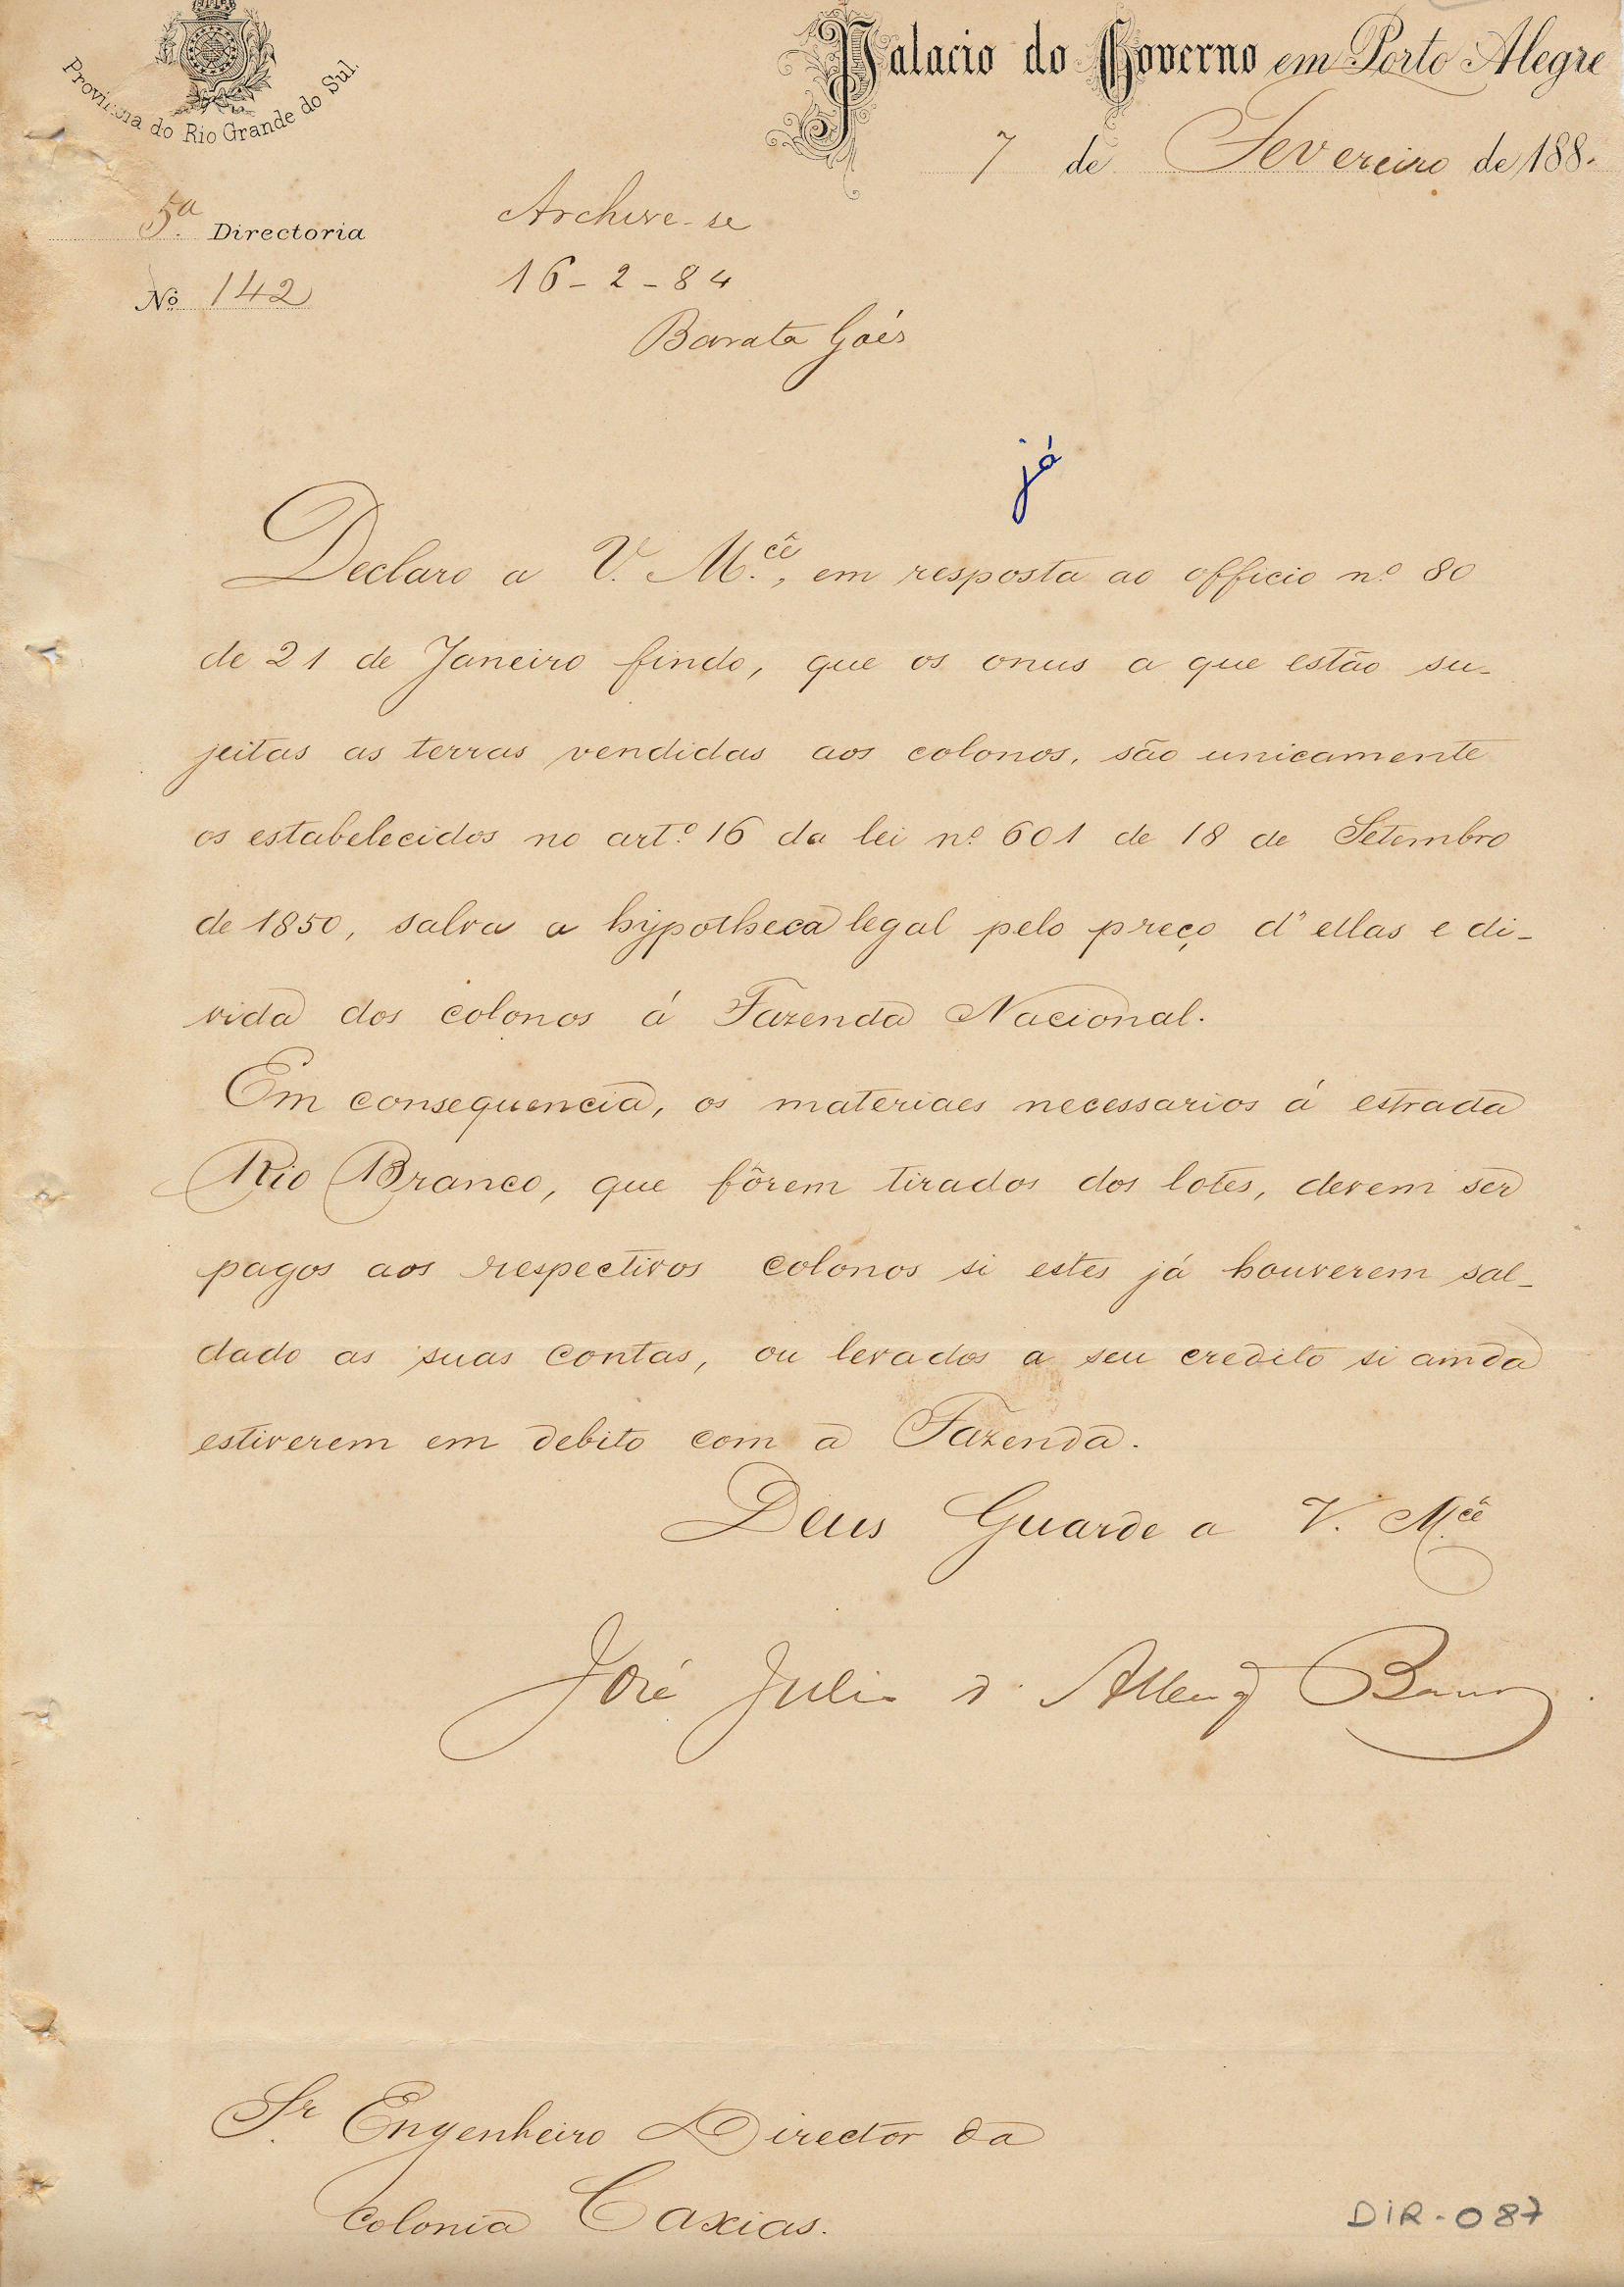 Provincia do Rio Grande do Sul.
Palacio do Governo em Porto Alegre
7 de Fevereiro de 188
5.ª Directoria
Nº 142
Archive-se
16-2-84
Barata Góes
já
Declaro a V. M.cê, em resposta ao officio nº 80
de 21 de Janeiro findo, que os onus a que estão su-
jeitas as terras vendidas aos colonos, são unicamente
os estabelecidos no artº 16 da lei nº 601 de 18 de Setembro
de 1850, salva a hypotheca legal pelo preço d'ellas e di-
vida dos colonos á Fazenda Nacional.
Em consequencia, os materiaes necessarios á estrada
Rio Branco, que fôrem tirados dos lotes, devem ser
pagos aos respectivos colonos si estes já houverem sal-
dado as suas contas, ou levados a seu credito si ainda
estiverem em debito com a Fazenda.
Deus Guarde a V. Mcê
José Julio d'
Sr. Engenheiro Director da
Colonia Caxias.
DIR-087